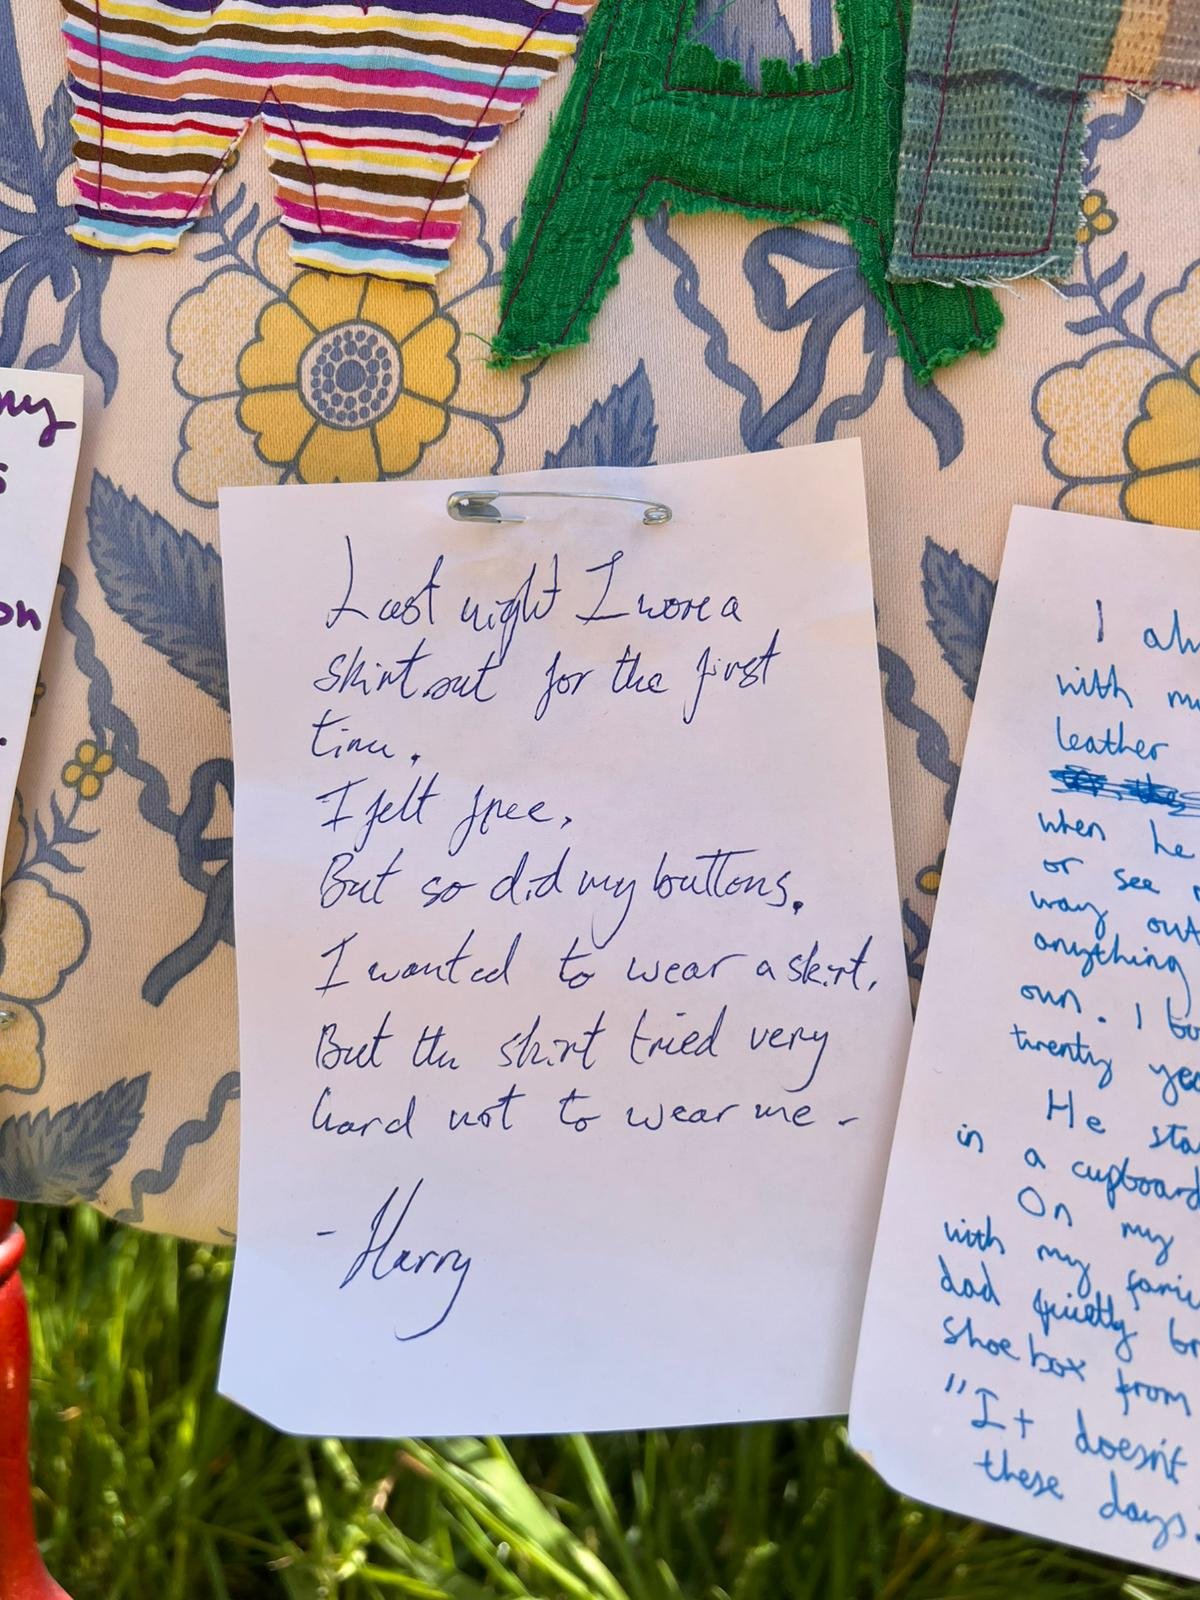 WA
my
s
on
.
Last night I wore a
skirt out for the first
time.
I felt free.
But so did my buttons.
I wanted to wear a skirt.
But the skirt tried very
hard not to wear me -
- Harry
I
with
leather
when he
or see
way out
anything
own. I
twenty
He
in a cupboard
On my
with my
dad quietly
shoe box from
"It doesn't
these days.